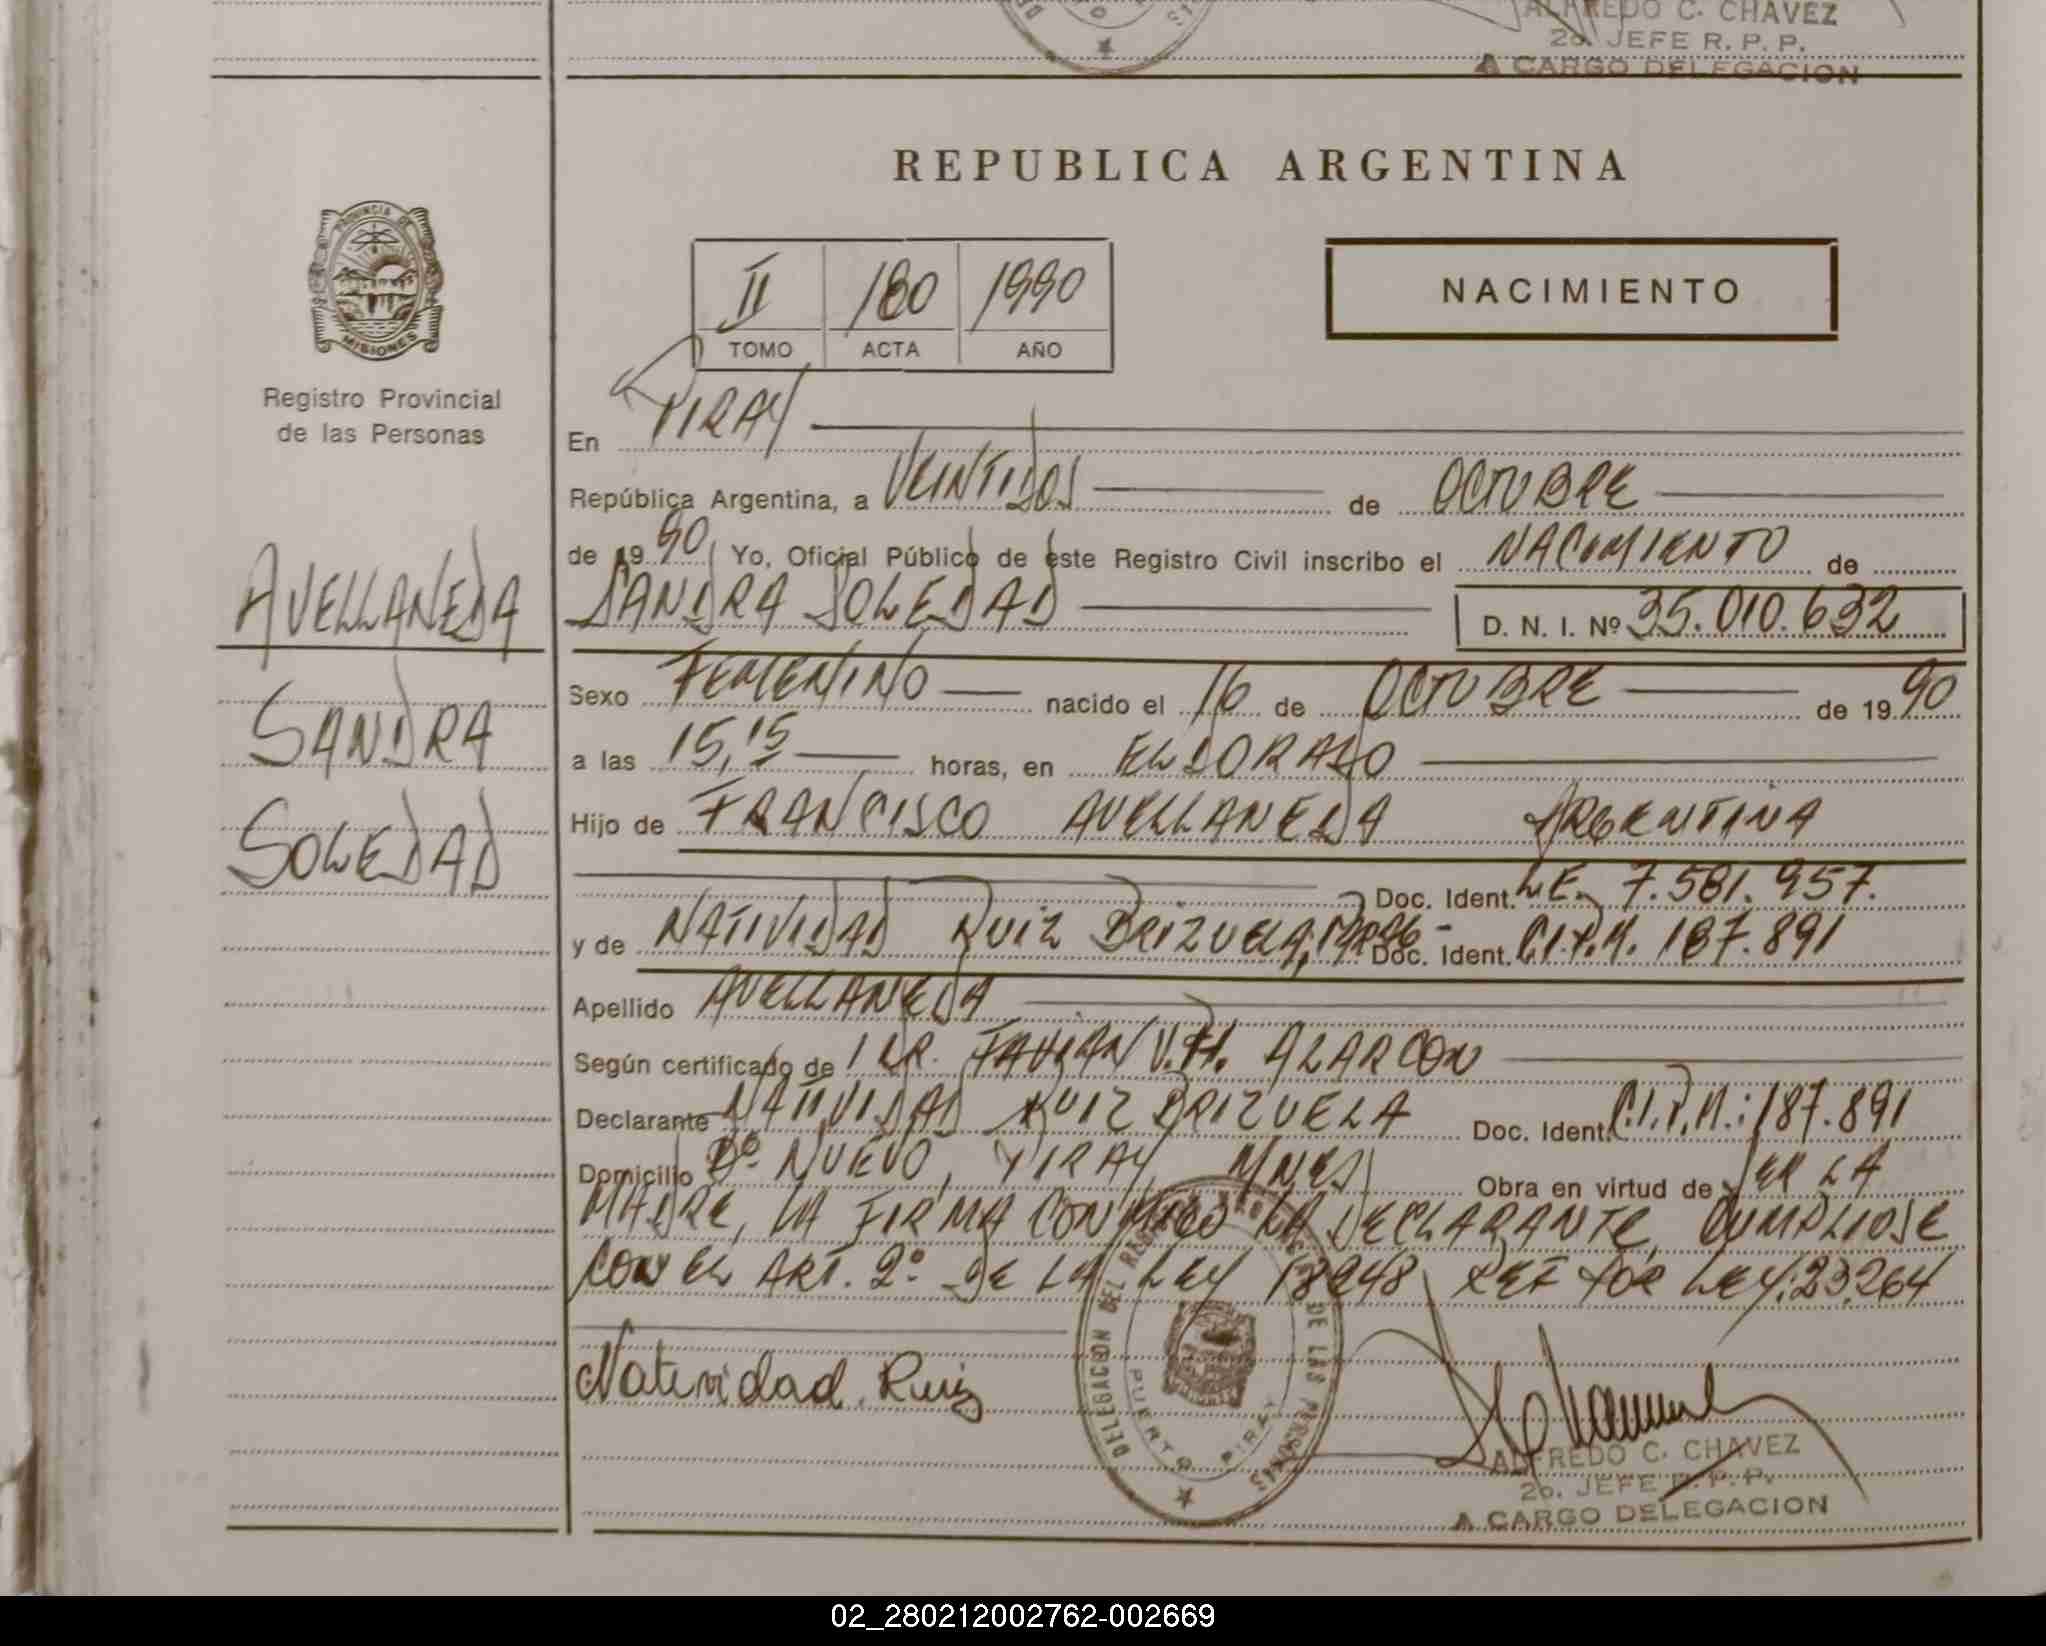 ALFREDO C. CHAVEZ
2o. JEFE R. P. P.
A CARGO DELEGACION
REPUBLICA ARGENTINA
PROVINCIA DE
MISIONES
Registro Provincial
de las Personas
II 180 1990
TOMO ACTA AÑO
NACIMIENTO
AVELLANEDA
SANDRA
SOLEDAD
En PIRAY
República Argentina, a VEINTIDOS de OCTUBRE
de 19 90 Yo, Oficial Público de este Registro Civil inscribo el NACIMIENTO de
SANDRA SOLEDAD D. N. I. Nº 35.010.632
Sexo FEMENINO nacido el 16 de OCTUBRE de 19 90
a las 15,15 horas, en ELDORADO
Hijo de FRANCISCO AVELLANEDA ARGENTINA
Doc. Ident. L.E. 7.581.957.
y de NATIVIDAD RUIZ BRIZUELA, Doc. Ident. C.I.P.M. 187.891
Apellido AVELLANEDA
Según certificado de DR. V.H. ALARCON
Declarante NATIVIDAD RUIZ BRIZUELA Doc. Ident. C.I.P.M.: 187.891
Domicilio Bº NUEVO, PIRAY, MNES Obra en virtud de SER LA
MADRE, LA FIRMA CONMIGO LA DECLARANTE, CUMPLIOSE
CON EL ART. 2º DE LA LEY 18248 REF POR LEY:23.264
Natividad Ruiz
DELEGACION DEL REGISTRO PROVINCIAL DE LAS PERSONAS
PUERTO PIRAY
ALFREDO C. CHAVEZ
2o. JEFE R. P. P.
A CARGO DELEGACION
02_280212002762-002669